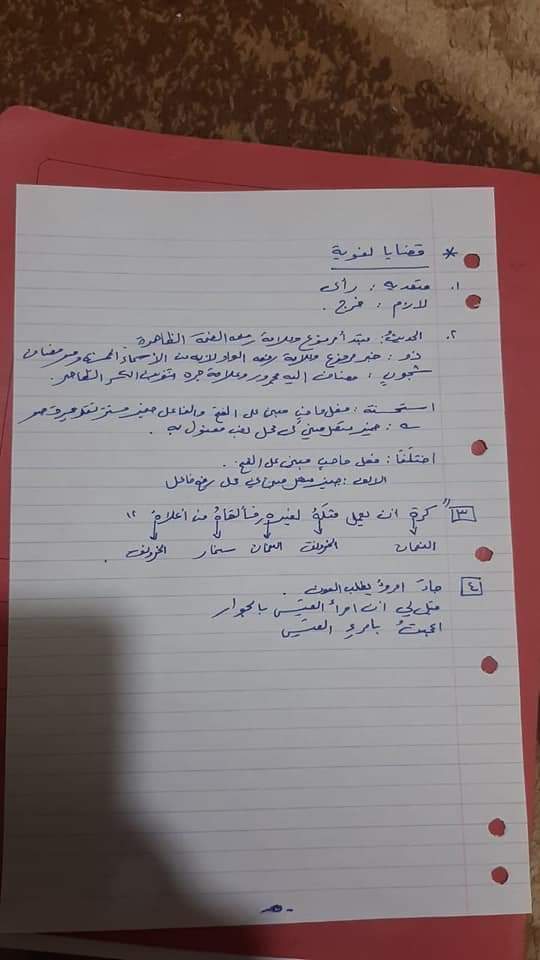 * قضايا لغوية
١. متعدية : رأى
لازم : خرج .
٢. الحديث : مبتدأ مرفوع وعلامة رفعه الضمة الظاهرة
ذو : خبر مرفوع وعلامة رفعه الواو لأنه من الأسماء الخمسة وهو مضاف
شجون : مضاف اليه مجرور وعلامة جره تنوين الكسر الظاهر .
استحسنه : فعل ماضٍ مبني على الفتح والفاعل ضمير مستتر تقديره
ـه : ضمير متصل مبني في محل نصب مفعول به .
اختلفا : فعل ماضٍ مبني على الفتح .
الالف : ضمير متصل مبني في محل رفع فاعل
٣ " كره أن يعمل مثله لغيره فألقاه من أعلاه "
النعمان الخورنق النعمان سنمار الخورنق
٤ جاء امرؤ يطلب العون .
قيل لي ان امرأ القيس بالجوار
اعجبت بامرئ القيس